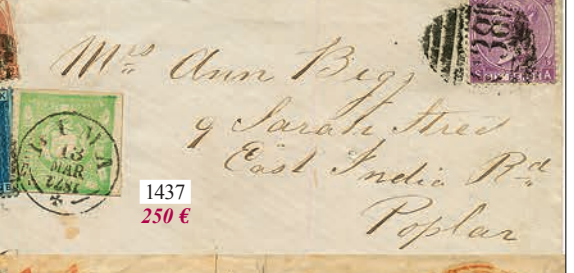 Mrs Ann Bigg
9 Sarah Street
East India Rd
Poplar
LIMA
13
MAR
1437
250 €